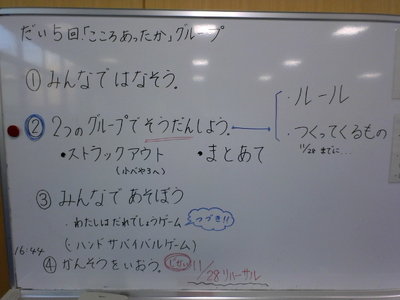 だい5回.「こころあったか」グループ
①みんなではなそう.
②2つのグループでそうだんしよう.
・ルール
・つくってくるもの
11/28までに...
・ストラックアウト ・まとあて
(小べや3へ)
③みんなであそぼう
・わたしはだれでしょうゲーム つづき!!
(・ハンドサバイバルゲーム)
16:44
④かんそうをいおう. じかい!!
11/28リハーサル